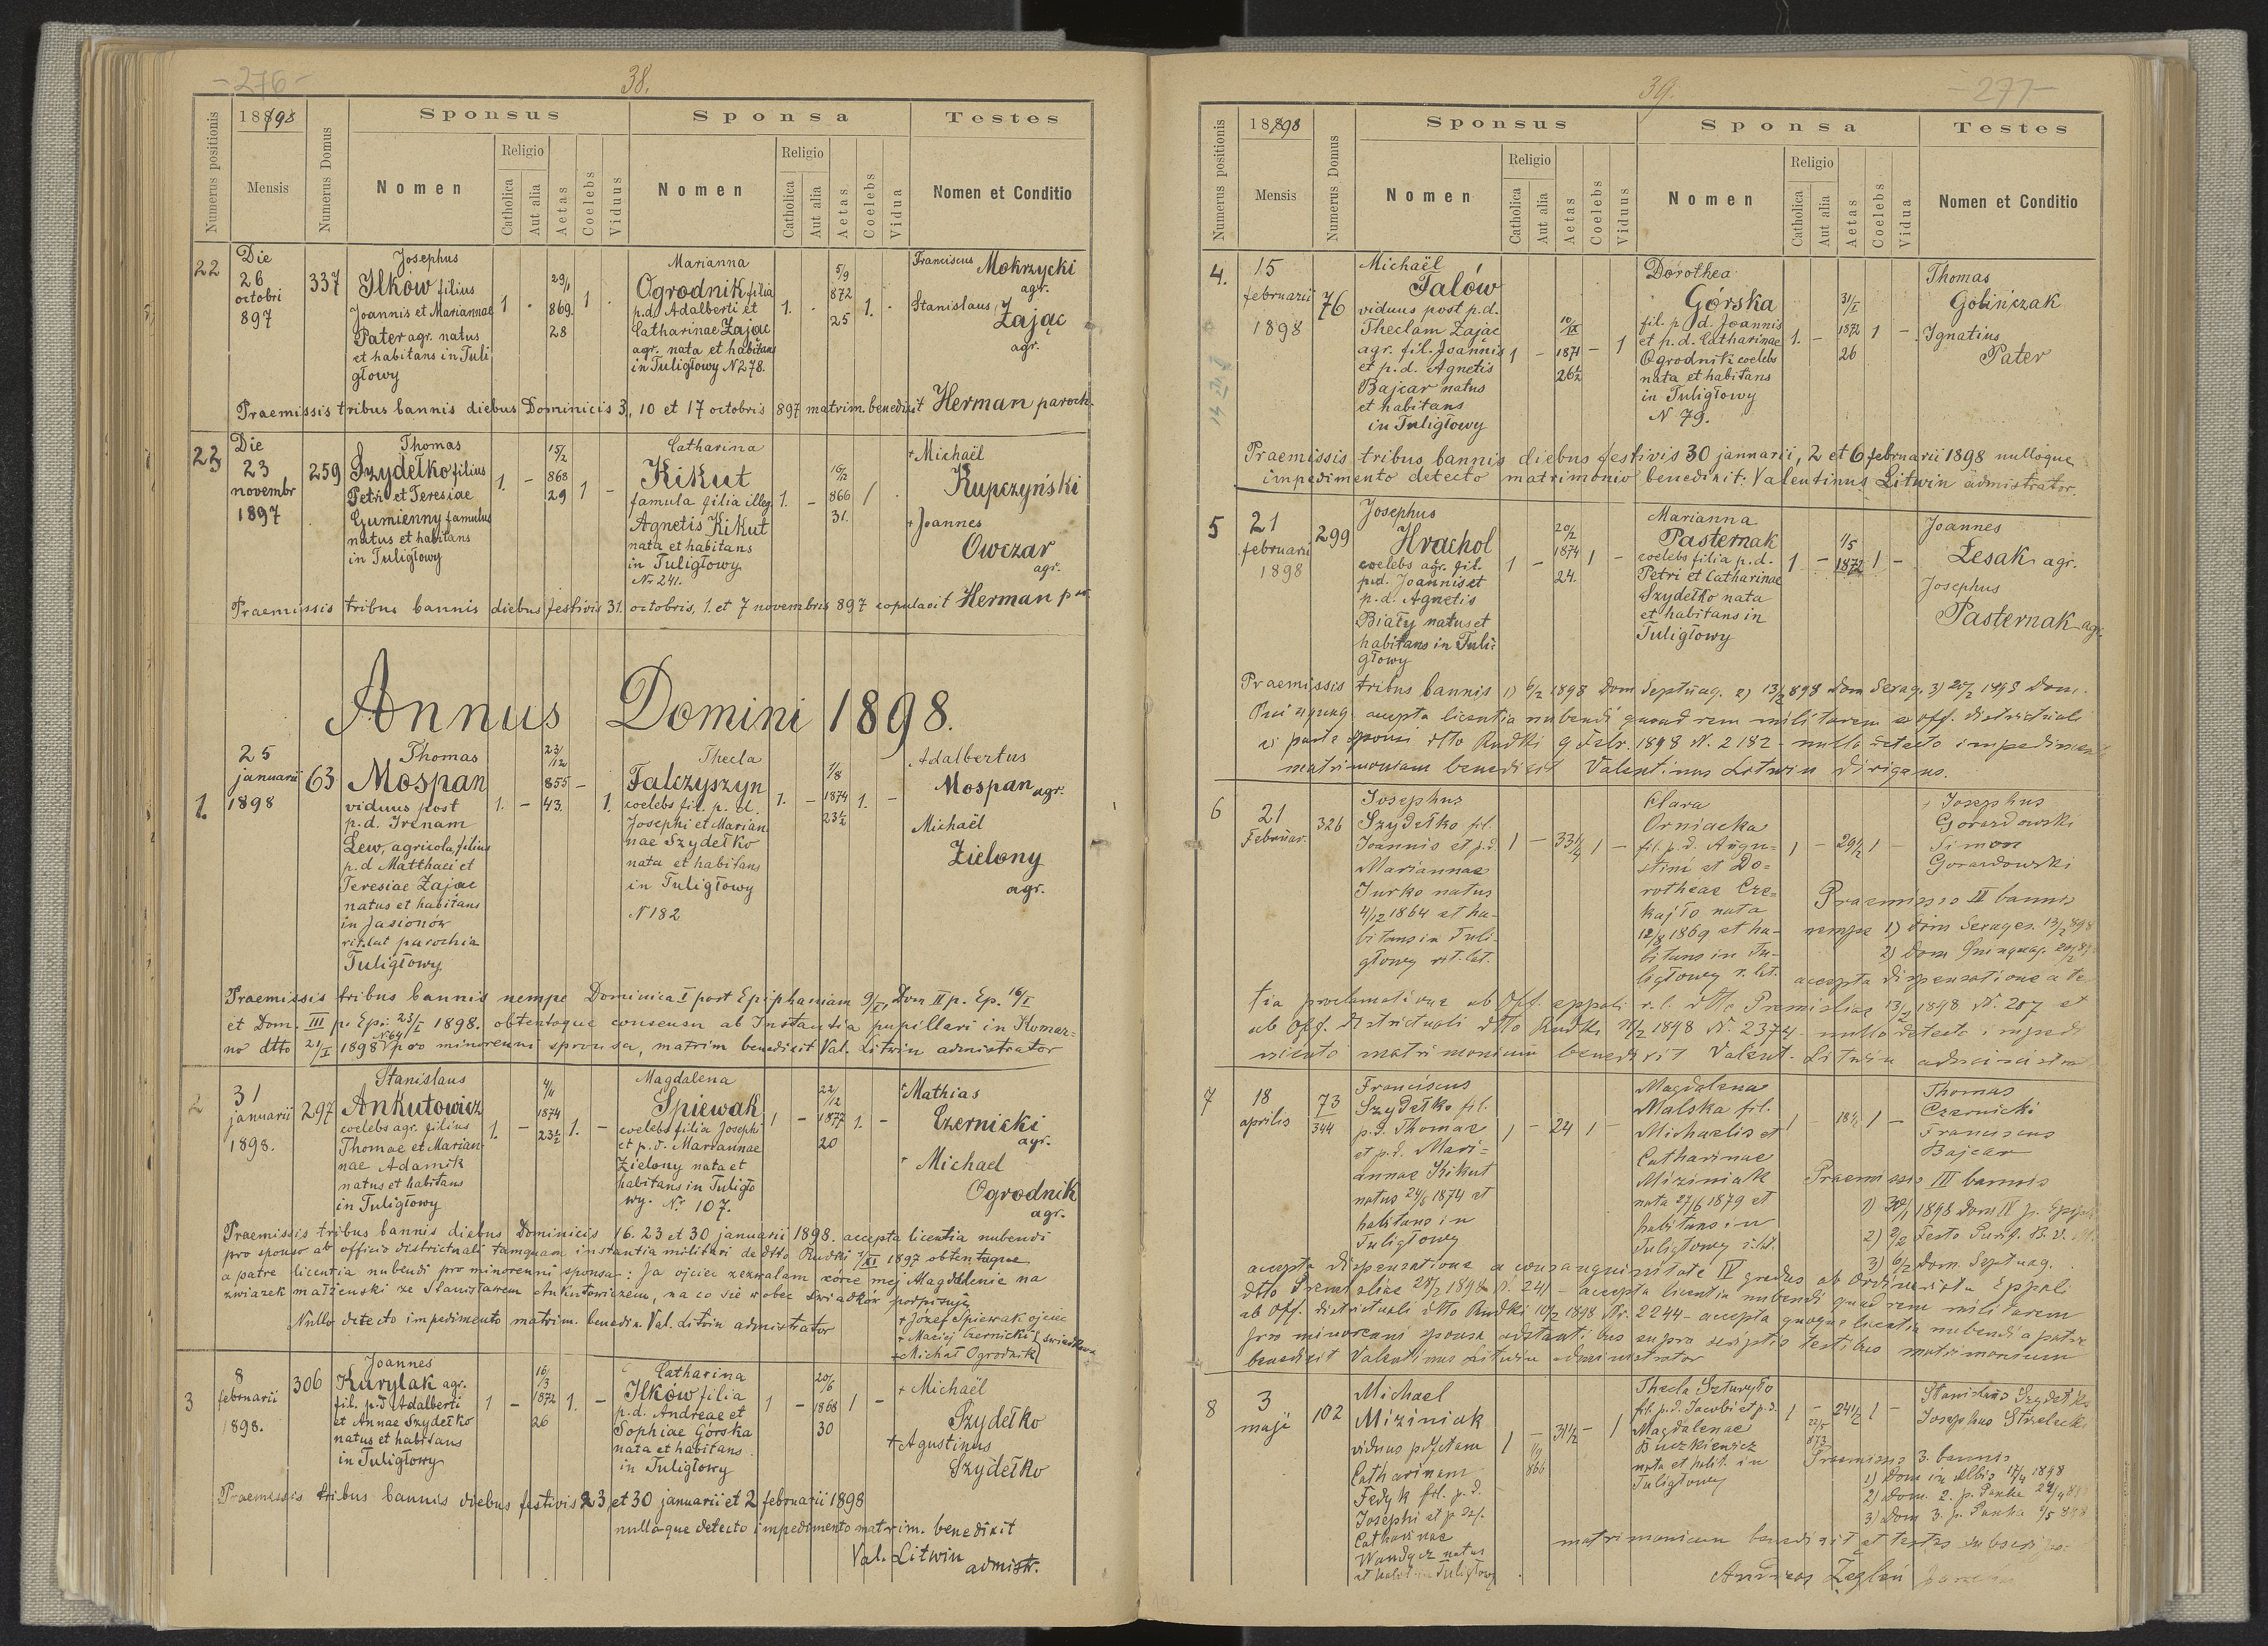 -276-
38.
Numerus positionis
1898
Mensis
Numerus Domus
Sponsus
Nomen
Religio
Catholica
Aut alia
Aetas
Coelebs
Viduus
Sponsa
Nomen
Religio
Catholica
Aut alia
Aetas
Coelebs
Vidua
Testes
Nomen et Conditio
22
Die
26
octobri
897
337
Josephus
Ilków filius
Joannis et Mariannae
Pater agr. natus
et habitans in Tuli
głowy
1 .
29/1
869
28
1 .
Marianna
Ogrodnik filia
p.d. Adalberti et
Catharinae Zając
agr. nata et habitans
in Tuligłowy N 278.
1. .
5/9
872
25
1. .
Franciscus Mokrzycki
agr.
Stanislaus Zając
agr.
Praemissis tribus bannis diebus Dominicis 3, 10 et 17 octobris 897 matrim. benedixit Herman paroch.
23
Die
23
novembr
1897
259
Thomas
Szydełko filius
Petri et Teresiae
Gumienny famulus
natus et habitans
in Tuligłowy
1. -
15/2
868
29
1 -
Catharina
Kikut
famula filia illeg.
Agnetis Kikut
nata et habitans
in Tuligłowy
Nr. 241.
1. -
16/2
866
31.
1 .
+ Michaël
Kupczyński
+ Joannes
Owczar
agr.
Praemissis tribus bannis diebus festivis 31. octobris, 1. et 7 novembris 897 copulavit Herman
Annus Domini 1898.
1.
25
januarii
1898
63
Thomas
Mospan
viduus post
p.d. Irenam
Lew, agricola, filius
p.d Matthaei et
Teresiae Zając
natus et habitans
in Jasionów
rit. lat parochia
Tuligłowy
1. -
23/12
855
43.
- 1.
Thecla
Falczyszyn
coelebs fil. p. d.
Josephi et Marian
nae Szydełko
nata et habitans
in Tuligłowy
N 182
1. -
1/8
1874
23½
1. -
Adalbertus
Mospan agr.
Michaël
Zielony
agr.
Praemissis tribus bannis nempe Dominica I post Epiphaniam 9/I, Dom II p. Ep. 16/I
et Dom. III p. Epi. 23/I 1898. obtentoque consensu ab Instantia pupillari in Komar=
no dtto 21/I 1898 N 64 pro minorenni sponsa, matrim benedixit Val. Litwin admistrator
2
31
januarii
1898.
297
Stanislaus
Ankutowicz
coelebs agr. filius
Thomae et Marian
nae Adamik
natus et habitans
in Tuligłowy
1. -
4/11
1874
23½
1. -
Magdalena
Spiewak
coelebs filia Josephi
et p. d. Mariannae
Zielony nata et
habitans in Tuligło
wy. Nr. 107.
1 -
22/12
1877
20
1. -
+ Mathias
Czernicki
agr.
+ Michael
Ogrodnik
agr.
Praemissis tribus bannis diebus Dominicis 16. 23 et 30 januarii 1898. accepta licentia nubendi
pro sponso ab officio districtuali tamquam instantia militari de dtto Rudki 1/XI 1897 obtentaque
a patre licentia nubendi pro minorenni sponsa: Ja ojciec zezwalam córce mej Magdalenie na
związek małżeński ze Stanisławem Ankutowiczem, na co się wobec świadków podpisuję
+ Józef Spiewak ojciec
Nullo detecto impedimento matrim. benedix. Val. Litwin admistrator
+ Maciej Czernicki } świadkowie
+ Michał Ogrodnik
3
8
februarii
1898.
306
Joannes
Kurylak agr.
fil. p.d Adalberti
et Annae Szydełko
natus et habitans
in Tuligłowy
1 -
16/3
1872
26
1. -
Catharina
Ilków filia
p.d. Andreae et
Sophiae Górska
nata et habitans
in Tuligłowy
1 -
20/6
1868
30
1 -
+ Michaël
Szydełko
+ Agustinus
Szydełko
Praemissis tribus bannis diebus festivis 23, et 30 januarii et 2 februarii 1898
nulloque detecto impedimento matrim. benedixit
Val. Litwin
admistr.
39.
-277-
Numerus positionis
1898
Mensis
Numerus Domus
Sponsus
Nomen
Religio
Catholica
Aut alia
Aetas
Coelebs
Viduus
Sponsa
Nomen
Religio
Catholica
Aut alia
Aetas
Coelebs
Vidua
Testes
Nomen et Conditio
4.
15
februarii
1898
76
Michaël
Jalów
viduus post p.d.
Theclam Zając
agr. fil. Joannis
et p.d. Agnetis
Bajcar natus
et habitans
in Tuligłowy
1 -
10/IX
1871
26½
- 1
Dorothea
Górska
fil. p. d. Joannis
et p.d. Catharinae
Ogrodnik coelebs
nata et habitans
in Tuligłowy
N 79.
1. -
31/I
1872
26
1 -
Thomas
Gobińczak
Ignatius
Pater
Praemissis tribus bannis diebus festivis 30 januarii, 2 et 6 februarii 1898 nulloque
impedimento detecto matrimonio benedixit: Valentinus Litwin admistrator.
5
21
februarii
1898
299
Josephus
Hrachol
coelebs agr. fil.
p.d. Joannis et
p.d. Agnetis
Biały natus et
habitans in Tuli=
głowy
1 -
20/2
1874
24.
1 -
Marianna
Pasternak
coelebs filia p.d.
Petri et Catharinae
Szydełko nata
et habitans in
Tuligłowy
1 -
1/5
1872
1 -
Joannes
Lesak agr.
Josephus
Pasternak agr.
Praemissis tribus bannis 1) 6/2 1898 Dom Septuag. 2) 13/2 898 Dom Sexag. 3) 20/2 1898 Dom.
Quinquag. accepta licentia nubendi quoad rem militarem ex off. districtuali
ex parte sponsi dtto Rudki 9 Febr. 1898 N. 2182 - nullo detecto impedimento
matrimonium benedixit Valentinus Litwin dirigens.
6
21
Februar.
326
Josephus
Szydełko fil.
Joannis et p.d.
Mariannae
Jurko natus
4/12 1864 et ha-
bitans in Tuli-
głowy rit. lat.
1 - 33¼ 1 -
Clara
Orniacka
fil. p. d. Augu-
stini et Do-
rotheae Cze-
kajło nata
12/8 1869 et ha-
bitans in Tu-
ligłowy r. lat.
1 - 29½ 1 -
+ Josephus
Gorazdowski
Simon
Gorazdowski
Praemissis II bannis
nempe 1) Dom Sexages. 13/2 898
2) Dom Quinquag. 20/2
accepta dispensatione a te
tia proclamatione ab Off. eppali r. l. dtto Premisliae 13/2 1898 N. 207 et
ab Off. districtuali dtto Rudki 11/2 1898 N. 2374 - nullo detecto impedi
mento matrimonium benedixit Valent. Litwin
7
18
aprilis
73
344
Franciscus
Szydełko fil.
p.d. Thomae
et p.d. Mari=
annae Kikut
natus 24/1 1874 et
habitans in
Tuligłowy
1 - 24 1 -
Magdalena
Malska fil.
Michaelis et
Catharinae
Miziniak
nata 27/6 1879 et
habitans in
Tuligłowy r. lat.
1 - 18½ 1 -
Thomas
Czernicki
Franciscus
Bajcar
Praemissis III bannis
1) 30/1 1898 Dom IV p.
2) 2/2 Festo Purif. B. V.
3) 6/2 Dom. Septuag.
accepta dispensatione a consanguinitate IV gradus ab Ordinariatu Eppali
dtto Premisliae 28/2 1898 N. 241 - accepta licentia nubendi quoad rem militarem
ab Off. districtuali dtto Rudki 10/2 1898 Nr. 2244 - accepta quoque licentia nubendi a patre
pro minorenni sponsa adstantibus supra scriptis testibus matrimonium
benedixit Valentinus Litwin administrator
8
3
maji
102
Michael
Miziniak
viduus p. defctam
Catharinam
Fedyk fil. p. d.
Josephi et p. def.
Catharinae
natus
et habit. in Tuligłowy
1 - 31½ - 1
1/9
866
Thecla Szturyło
fil. p. d. Jacobi et p. d.
Magdalenae
Buczkiewicz
nata et habit. in
Tuligłowy
1 - 24½ 1 -
22/11
873
Stanislaus Szydełko
Josephus Strzelecki
Praemissis 3. bannis
1) Dom in Albis 17/4 1898
2) Dom. 2. p. Pascha 24/4 898
3) Dom 3. p. Pascha 1/5 898
matrimonium benedixit et testes
Andreas Żegleń